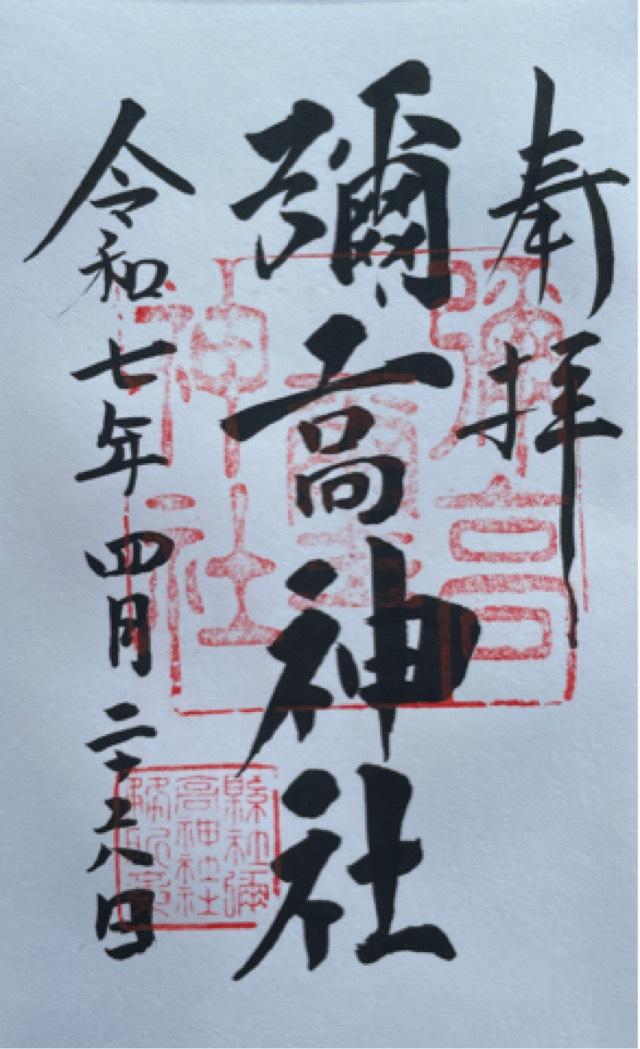 奉拝
彌高神社
令和七年四月二十六日
彌高
璽
神社
縣社彌
高神社社
務所